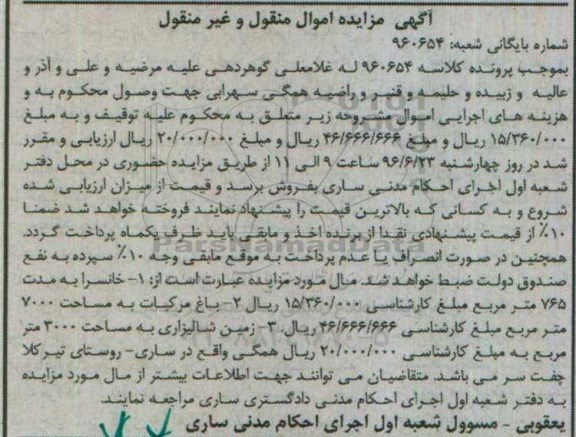 آگهی مزایده اموال منقول و غیر منقول
شماره بایگانی شعبه: ۹۶۰۶۵۴
بموجب پرونده کلاسه ۹۶۰۶۵۴ له غلامعلی گوهردهی علیه مرضیه و علی و آذر و
عالیه و زبیده و حلیمه و قنبر و راضیه همگی سهرابی جهت وصول محکوم به و
هزینه های اجرایی اموال مشروحه زیر متعلق به محکوم علیه توقیف و به مبلغ
۱۵/۳۶۰/۰۰۰ ریال و مبلغ ۴۶/۶۶۶/۶۶۶ ریال و مبلغ ۲۰/۰۰۰/۰۰۰ ریال ارزیابی و مقرر
شد در روز چهارشنبه ۹۶/۶/۲۳ ساعت ۹ الی ۱۱ از طریق مزایده حضوری در محل دفتر
شعبه اول اجرای احکام مدنی ساری بفروش برسد و قیمت از میزان ارزیابی شده
شروع و به کسانی که بالاترین قیمت را پیشنهاد نمایند فروخته خواهد شد ضمنا
۱۰٪ از قیمت پیشنهادی نقدا از برنده اخذ و مابقی باید ظرف یکماه پرداخت گردد.
همچنین در صورت انصراف یا عدم پرداخت به موقع مابقی وجه ۱۰٪ سپرده به نفع
صندوق دولت ضبط خواهد شد. مال مورد مزایده عبارت است از: ۱- خانسرا به مدت
۷۶۵ متر مربع مبلغ کارشناسی ۱۵/۳۶۰/۰۰۰ ریال ۲- باغ مرکبات به مساحت ۷۰۰۰
متر مربع مبلغ کارشناسی ۴۶/۶۶۶/۶۶۶ ریال ۳- زمین شالیزاری به مساحت ۳۰۰۰ متر
مربع به مبلغ کارشناسی ۲۰/۰۰۰/۰۰۰ ریال همگی واقع در ساری- روستای تیرکلا
چفت سر می باشد. متقاضیان می توانند جهت اطلاعات بیشتر از مال مورد مزایده
به دفتر شعبه اول اجرای احکام مدنی دادگستری ساری مراجعه نمایند.
یعقوبی - مسوول شعبه اول اجرای احکام مدنی ساری
ParsNamadData